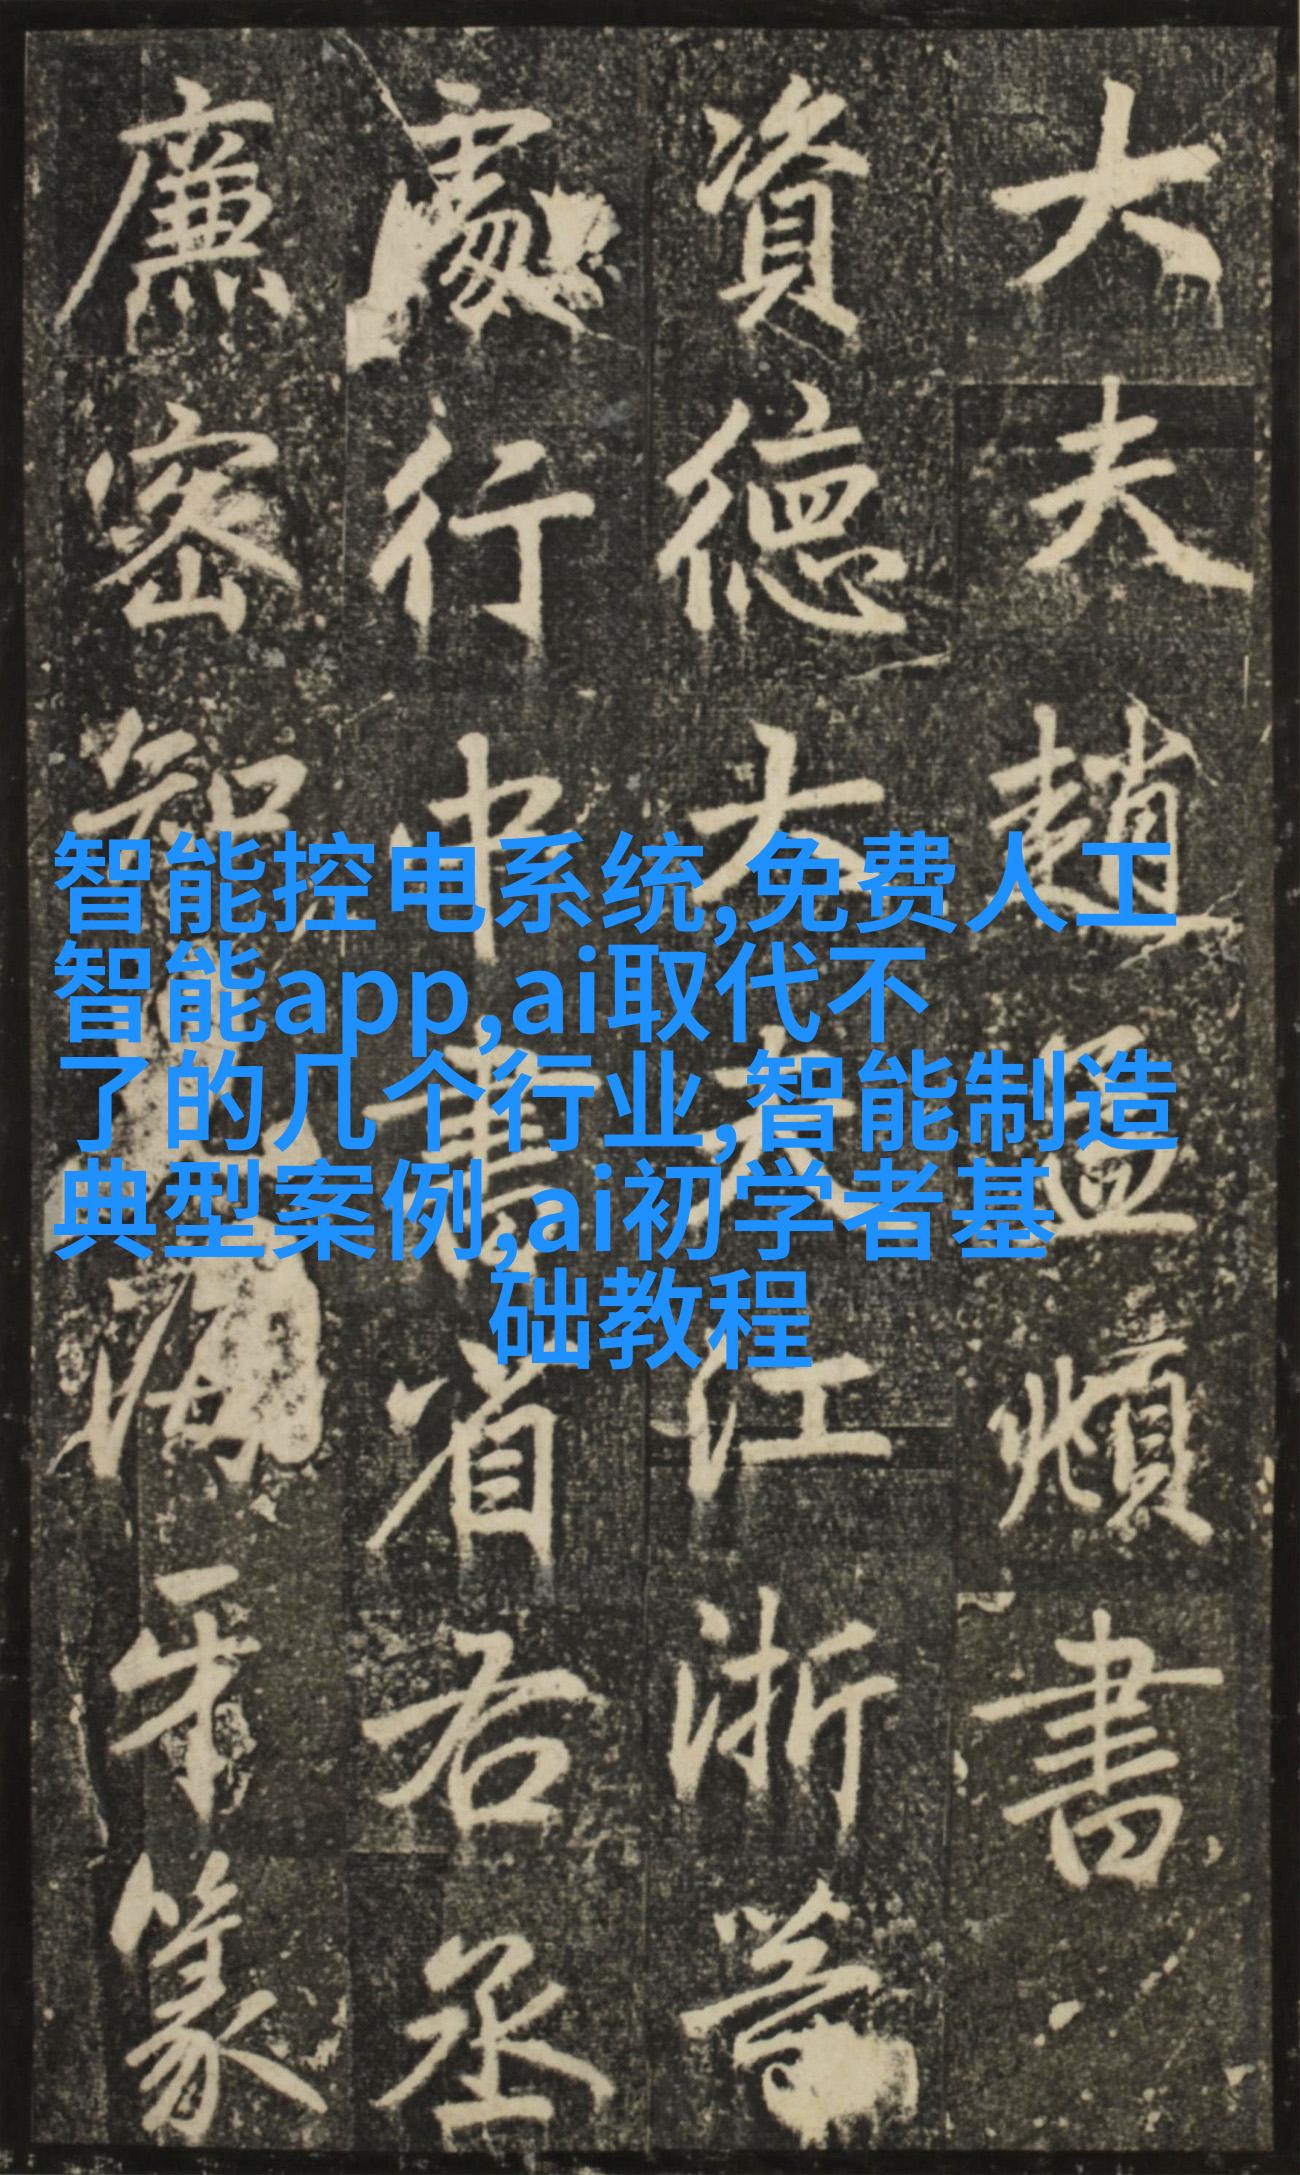 大夫趙孟頫書
資德大夫江浙等
處行中書省右丞
廉密知海牙篆
智能控电系统,免费人工
智能app,ai取代不
了的几个行业,智能制造
典型案例,ai初学者基
础教程